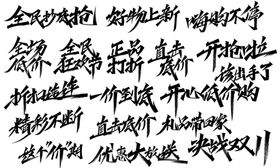 全民抄底抢 好物上新 嗨购不停
全场低价 全民狂欢节 正品打折 直击低价 开抢啦 该出手了
折扣连连 一价到底 开心低价购
精彩不断 直击底价 礼品带回家
这个“价”对 优惠大放送 决战双11